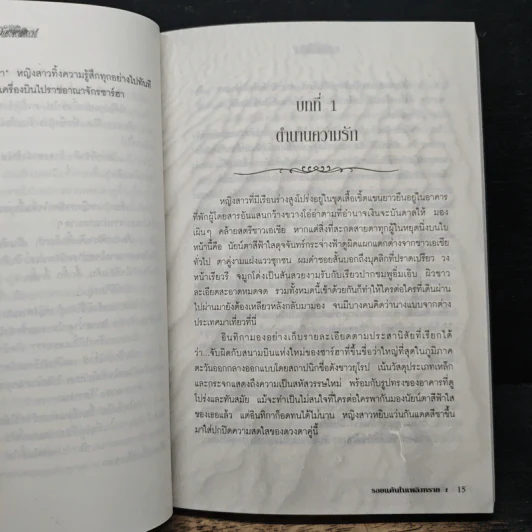 า" หญิงสาวทิ้งความรู้สึกทุกอย่างไปทันที
เครื่องบินไปราชอาณาจักรชาร์ฮา
บทที่ 1
ตำนานความรัก
หญิงสาวที่มีเรือนร่างสูงโปร่งอยู่ในชุดเสื้อเชิ้ตแขนยาวยืนอยู่ในอาคาร
ที่พักผู้โดยสารอันแสนกว้างขวางโอ่อ่าตามที่อำนาจเงินจะบันดาลให้ มอง
เผินๆ คล้ายสตรีชาวเอเชีย หากแต่สิ่งที่สะกดสายตาทุกผู้ในหยุดนิ่งบนใบ
หน้านี้คือ นัยน์ตาสีฟ้าใสดุจจันทร์กระจ่างฟ้าดูผิดแผกแตกต่างจากชาวเอเชีย
ทั่วไป ตาคู่งามแฝงแววซุกซน ผมดำซอยสั้นบอกถึงบุคลิกที่ปราดเปรียว วง
หน้าเรียวรี จมูกโด่งเป็นสันสวยงามรับกับเรียวปากชมพูอิ่มเอิบ ผิวขาว
ละเอียดสะอาดหมดจด รวมทั้งหมดนี้เข้าด้วยกันก็ทำให้ใครต่อใครที่เดินผ่าน
ไปผ่านมายังต้องเหลียวหลังกลับมามอง จนมีบางคนคิดว่านางแบบจากต่าง
ประเทศมาเที่ยวที่นี่
อินทิกามองอย่างเก็บรายละเอียดตามประสานิสัยที่เรียกได้
ว่า...จับผิดกับสนามบินแห่งใหม่ของชาร์ฮาที่ขึ้นชื่อว่าใหญ่ที่สุดในภูมิภาค
ตะวันออกกลางออกแบบโดยสถาปนิกชื่อดังชาวยุโรป เน้นวัสดุประเภทเหล็ก
และกระจกแสดงถึงความเป็นสหัสวรรษใหม่ พร้อมกับรูปทรงของอาคารที่ดู
โปร่งและทันสมัย แม้จะทำเป็นไม่สนใจที่ใครต่อใครพากันมองนัยน์ตาสีฟ้าใส
ของเธอแล้ว แต่อินทิกาก็อดทนได้ไม่นาน หญิงสาวหยิบแว่นกันแดดสีชาขึ้น
มาใส่ปกปิดความสดใสของดวงตาคู่นี้
รอยแค้นในเพลิงทราย / 15